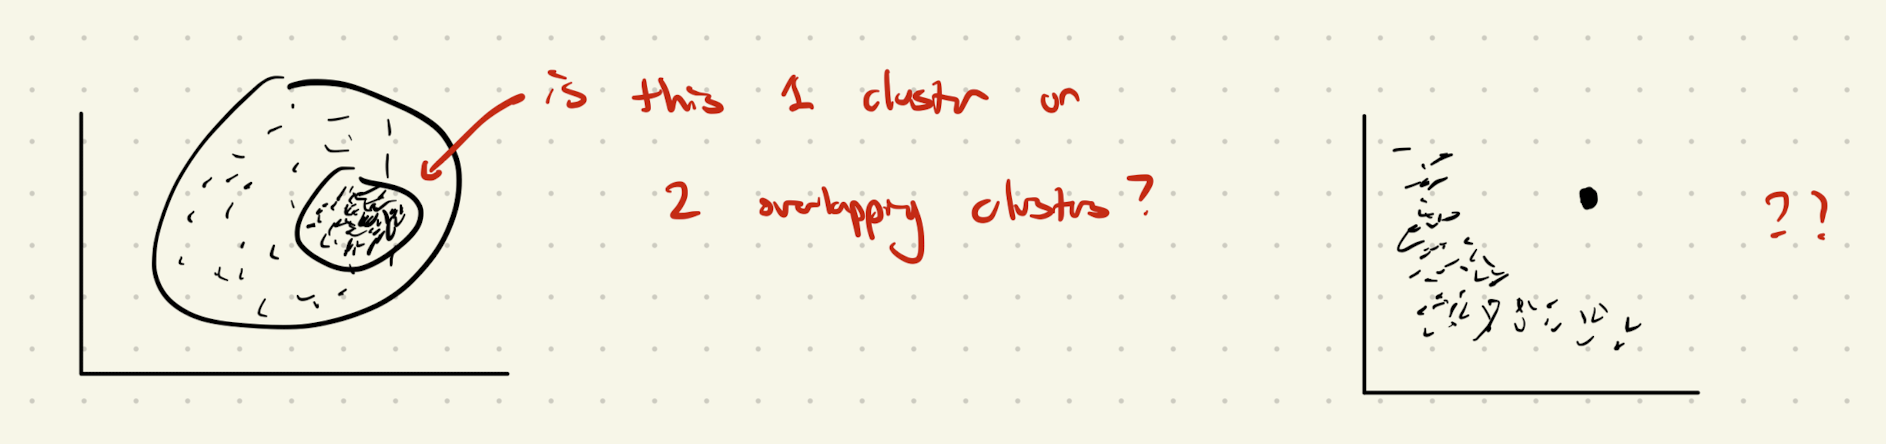 is this 1 cluster or
2 overlapping clusters?
??